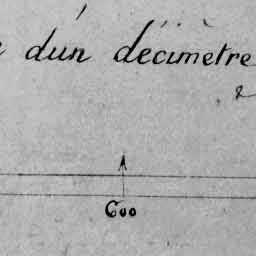 d'un décimetre
600